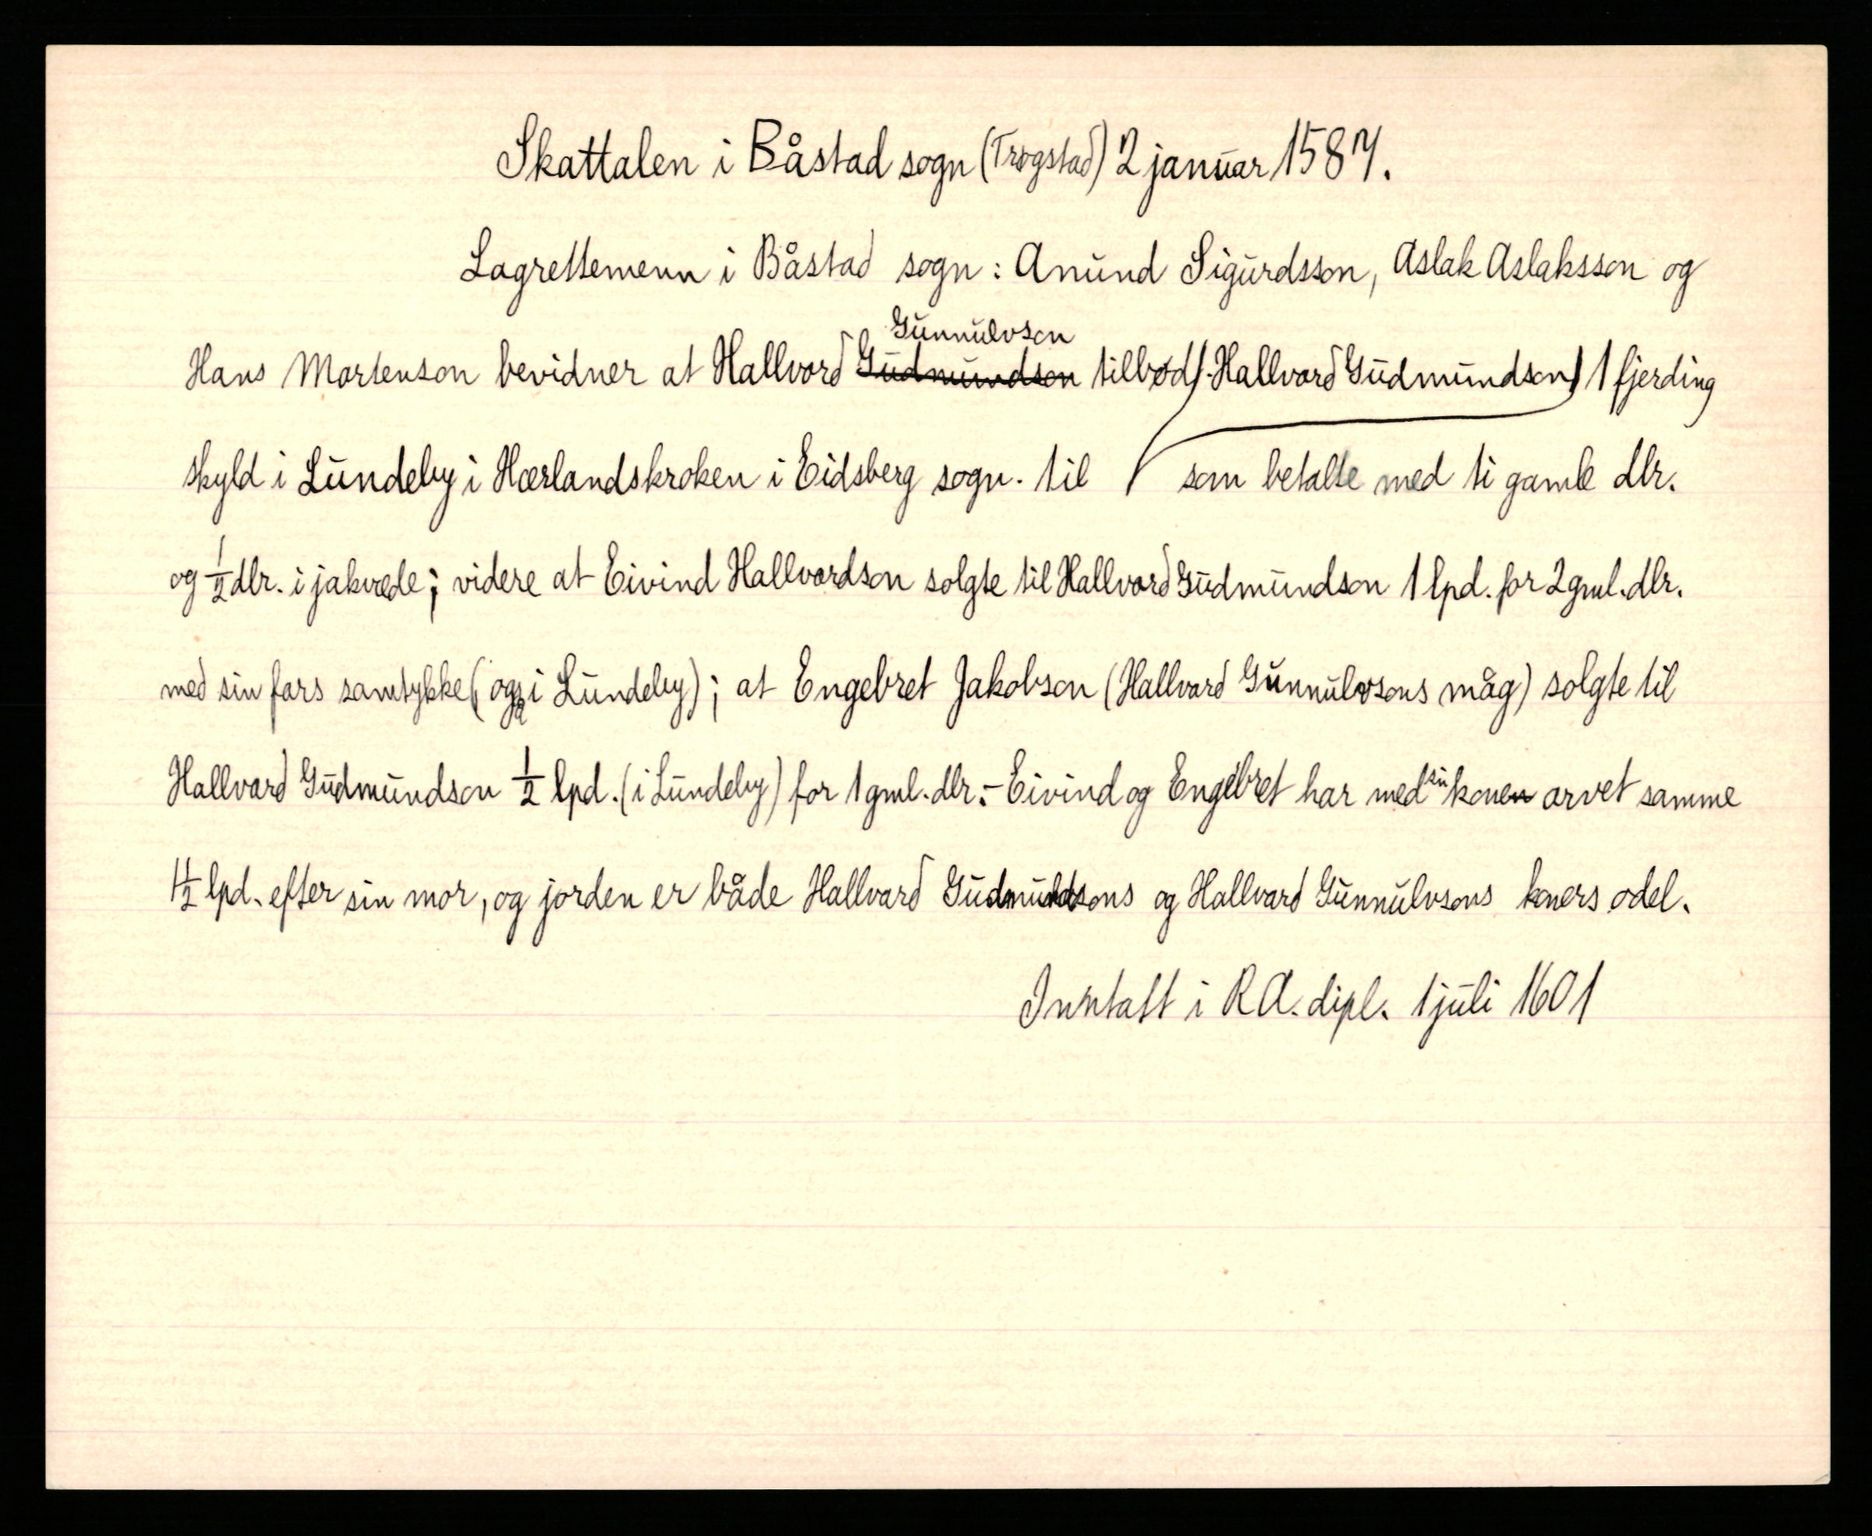 Skattalen i Båstad sogn (Trøgstad) 2 januar 1587.
Lagrettemenn i Båstad sogn: Anund Sigurdsson, Aslak Aslaksson og
Gunnulvson
Hans Mortenson bevidner at Hallvord Gudmundson tilbød Hallvard Gudmundson 1 fjerding
skyld i Lundeby i Hærlandskroken i Eidsberg sogn. til som betalte med ti gamle dlr.
og 1/2 dlr. i jakvæde; videre at Eivind Hallvordson solgte til Hallvord Gudmundson 1 lpd. for 2 gml. dlr.
med sin fars samtykke (også i Lundeby); at Engebret Jakobson (Hallvard Gunnulvsons måg) solgte til
Hallvard Gudmundson 1/2 lpd. (i Lundeby) for 1 gml. dlr.- Eivind og Engebret har med sin konen arvet samme
1 1/2 lpd. efter sin mor, og jorden er både Hallvard Gudmundsons og Hallvard Gunnulvsons koners odel.
Inntatt i RA. dipl. 1 juli 1601